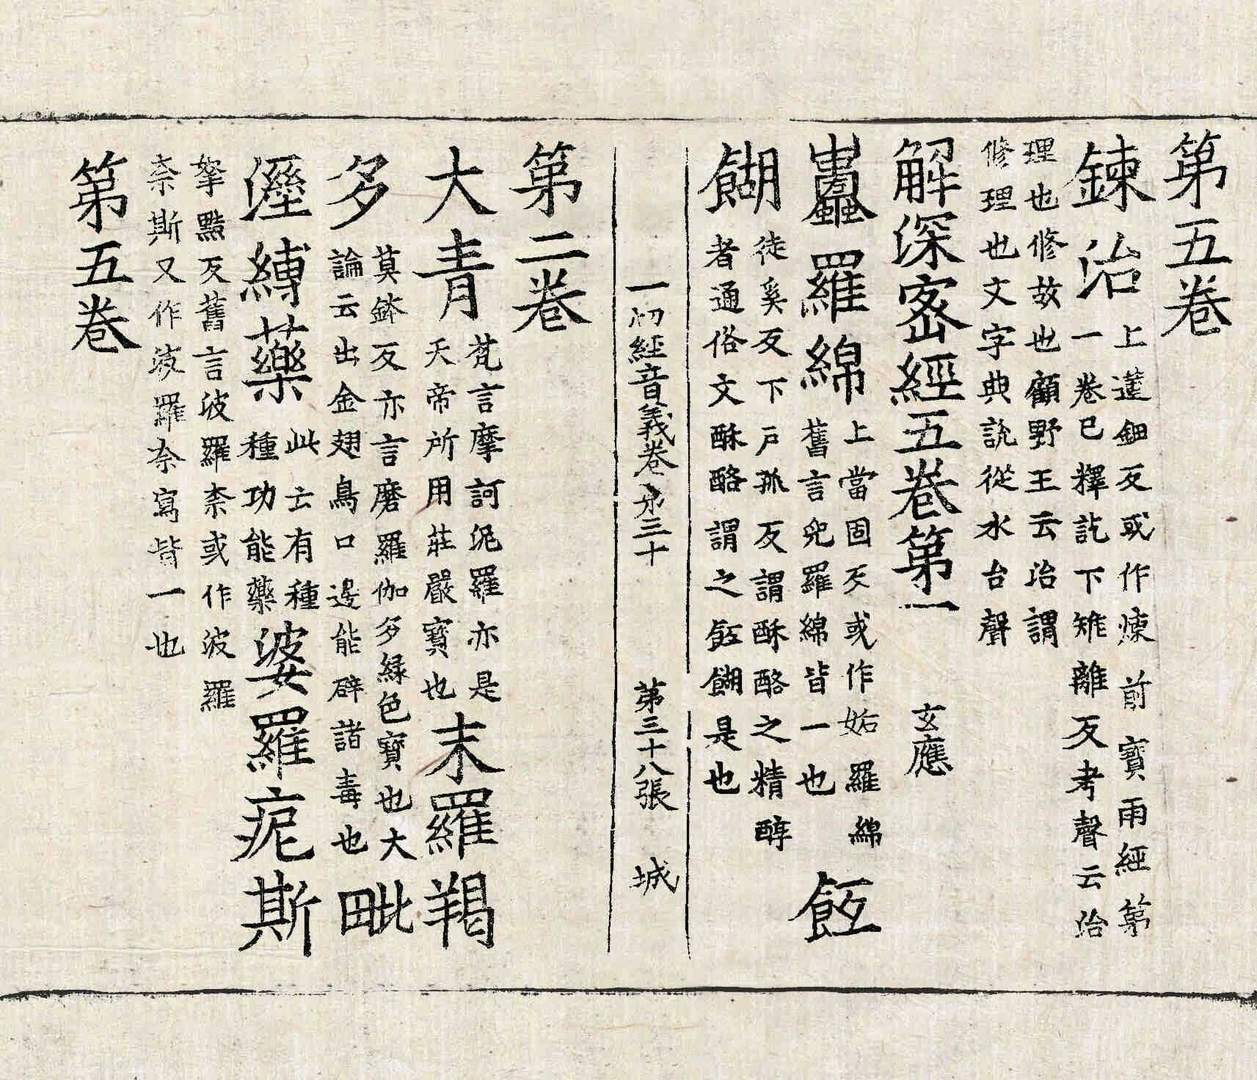 第五卷
鍊治
上蓮鈿反或作煉前寶雨經第
一卷已釋訖下雉離反考聲云治
理也修故也顧野王云治謂
修理也文字典說從水台聲
解深密經五卷第一 玄應
蠹羅綿
上當固反或作妬羅綿
舊言兜羅綿皆一也
䬣
餬
徒奚反下戶孤反謂酥酪之精醇
者通俗文酥酪謂之䬣餬是也
一切經音義卷第三十 第三十八張 城
第二卷
大青
梵言摩訶泥羅亦是
天帝所用莊嚴寶也
末羅羯
多
莫鉢反亦言磨羅伽多綠色寶也大
論云出金翅鳥口邊能辟諸毒也
毗
溼縛藥
此云有種
種功能藥
婆羅痆斯
拏黠反舊言波羅柰或作波羅
柰斯又作波羅柰寫皆一也
第五卷